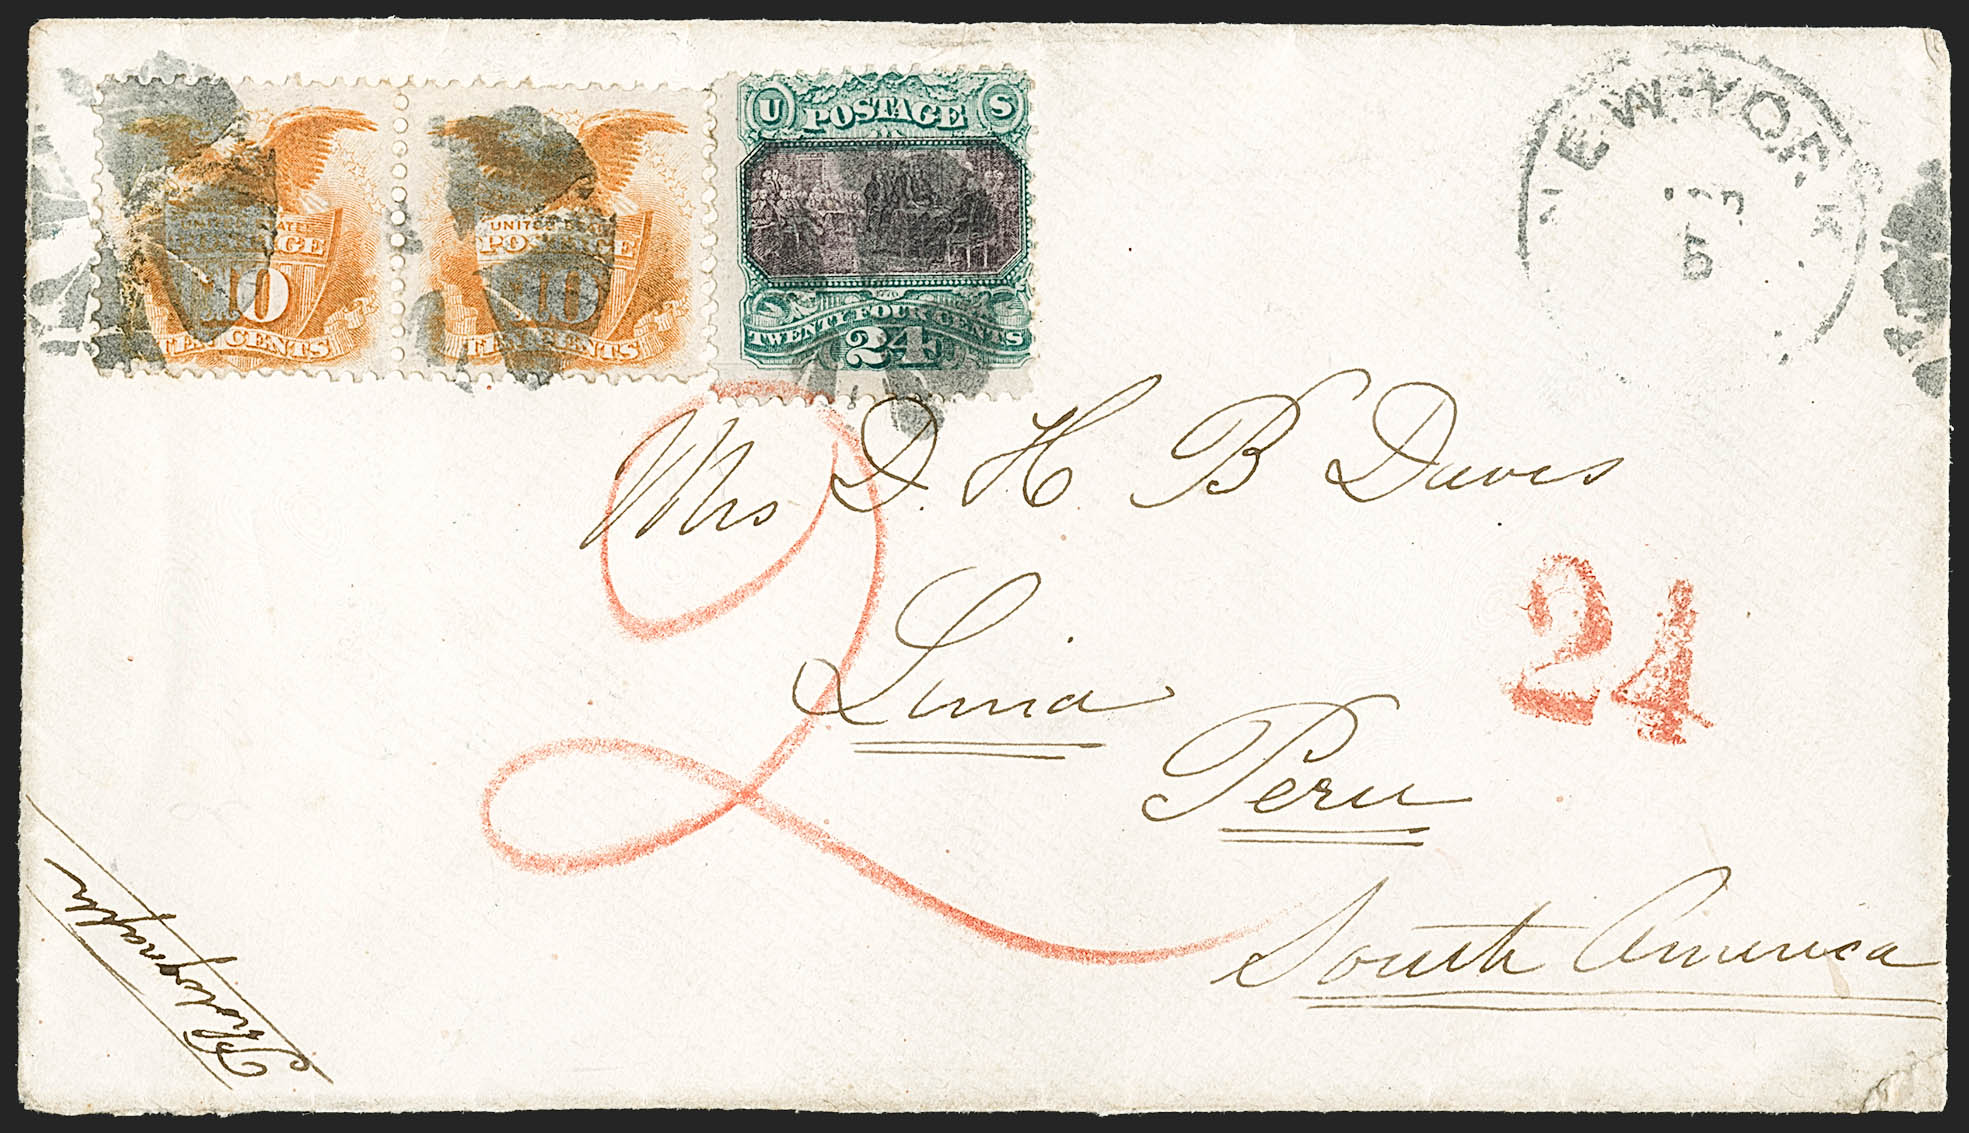 UNITED STATES
POSTAGE
10
TEN CENTS
UNITED STATES
POSTAGE
10
TEN CENTS
U POSTAGE S
1776
TWENTY FOUR CENTS
24
NEW YORK
5
2
Mrs D. H. B Davis
24
Lima
Peru
South America
Photografh